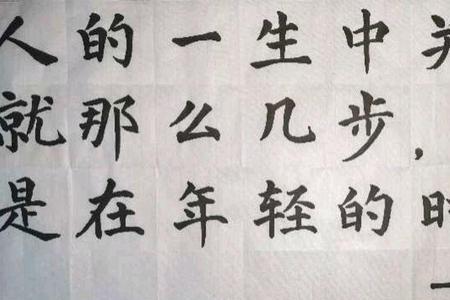 人的一生中关
就那么几步，
是在年轻的时